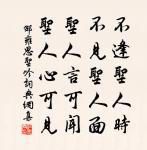 不逢聖人時
不見聖人面
聖人言可聞
聖人心可見
邵雍思聖吟詞典網喜